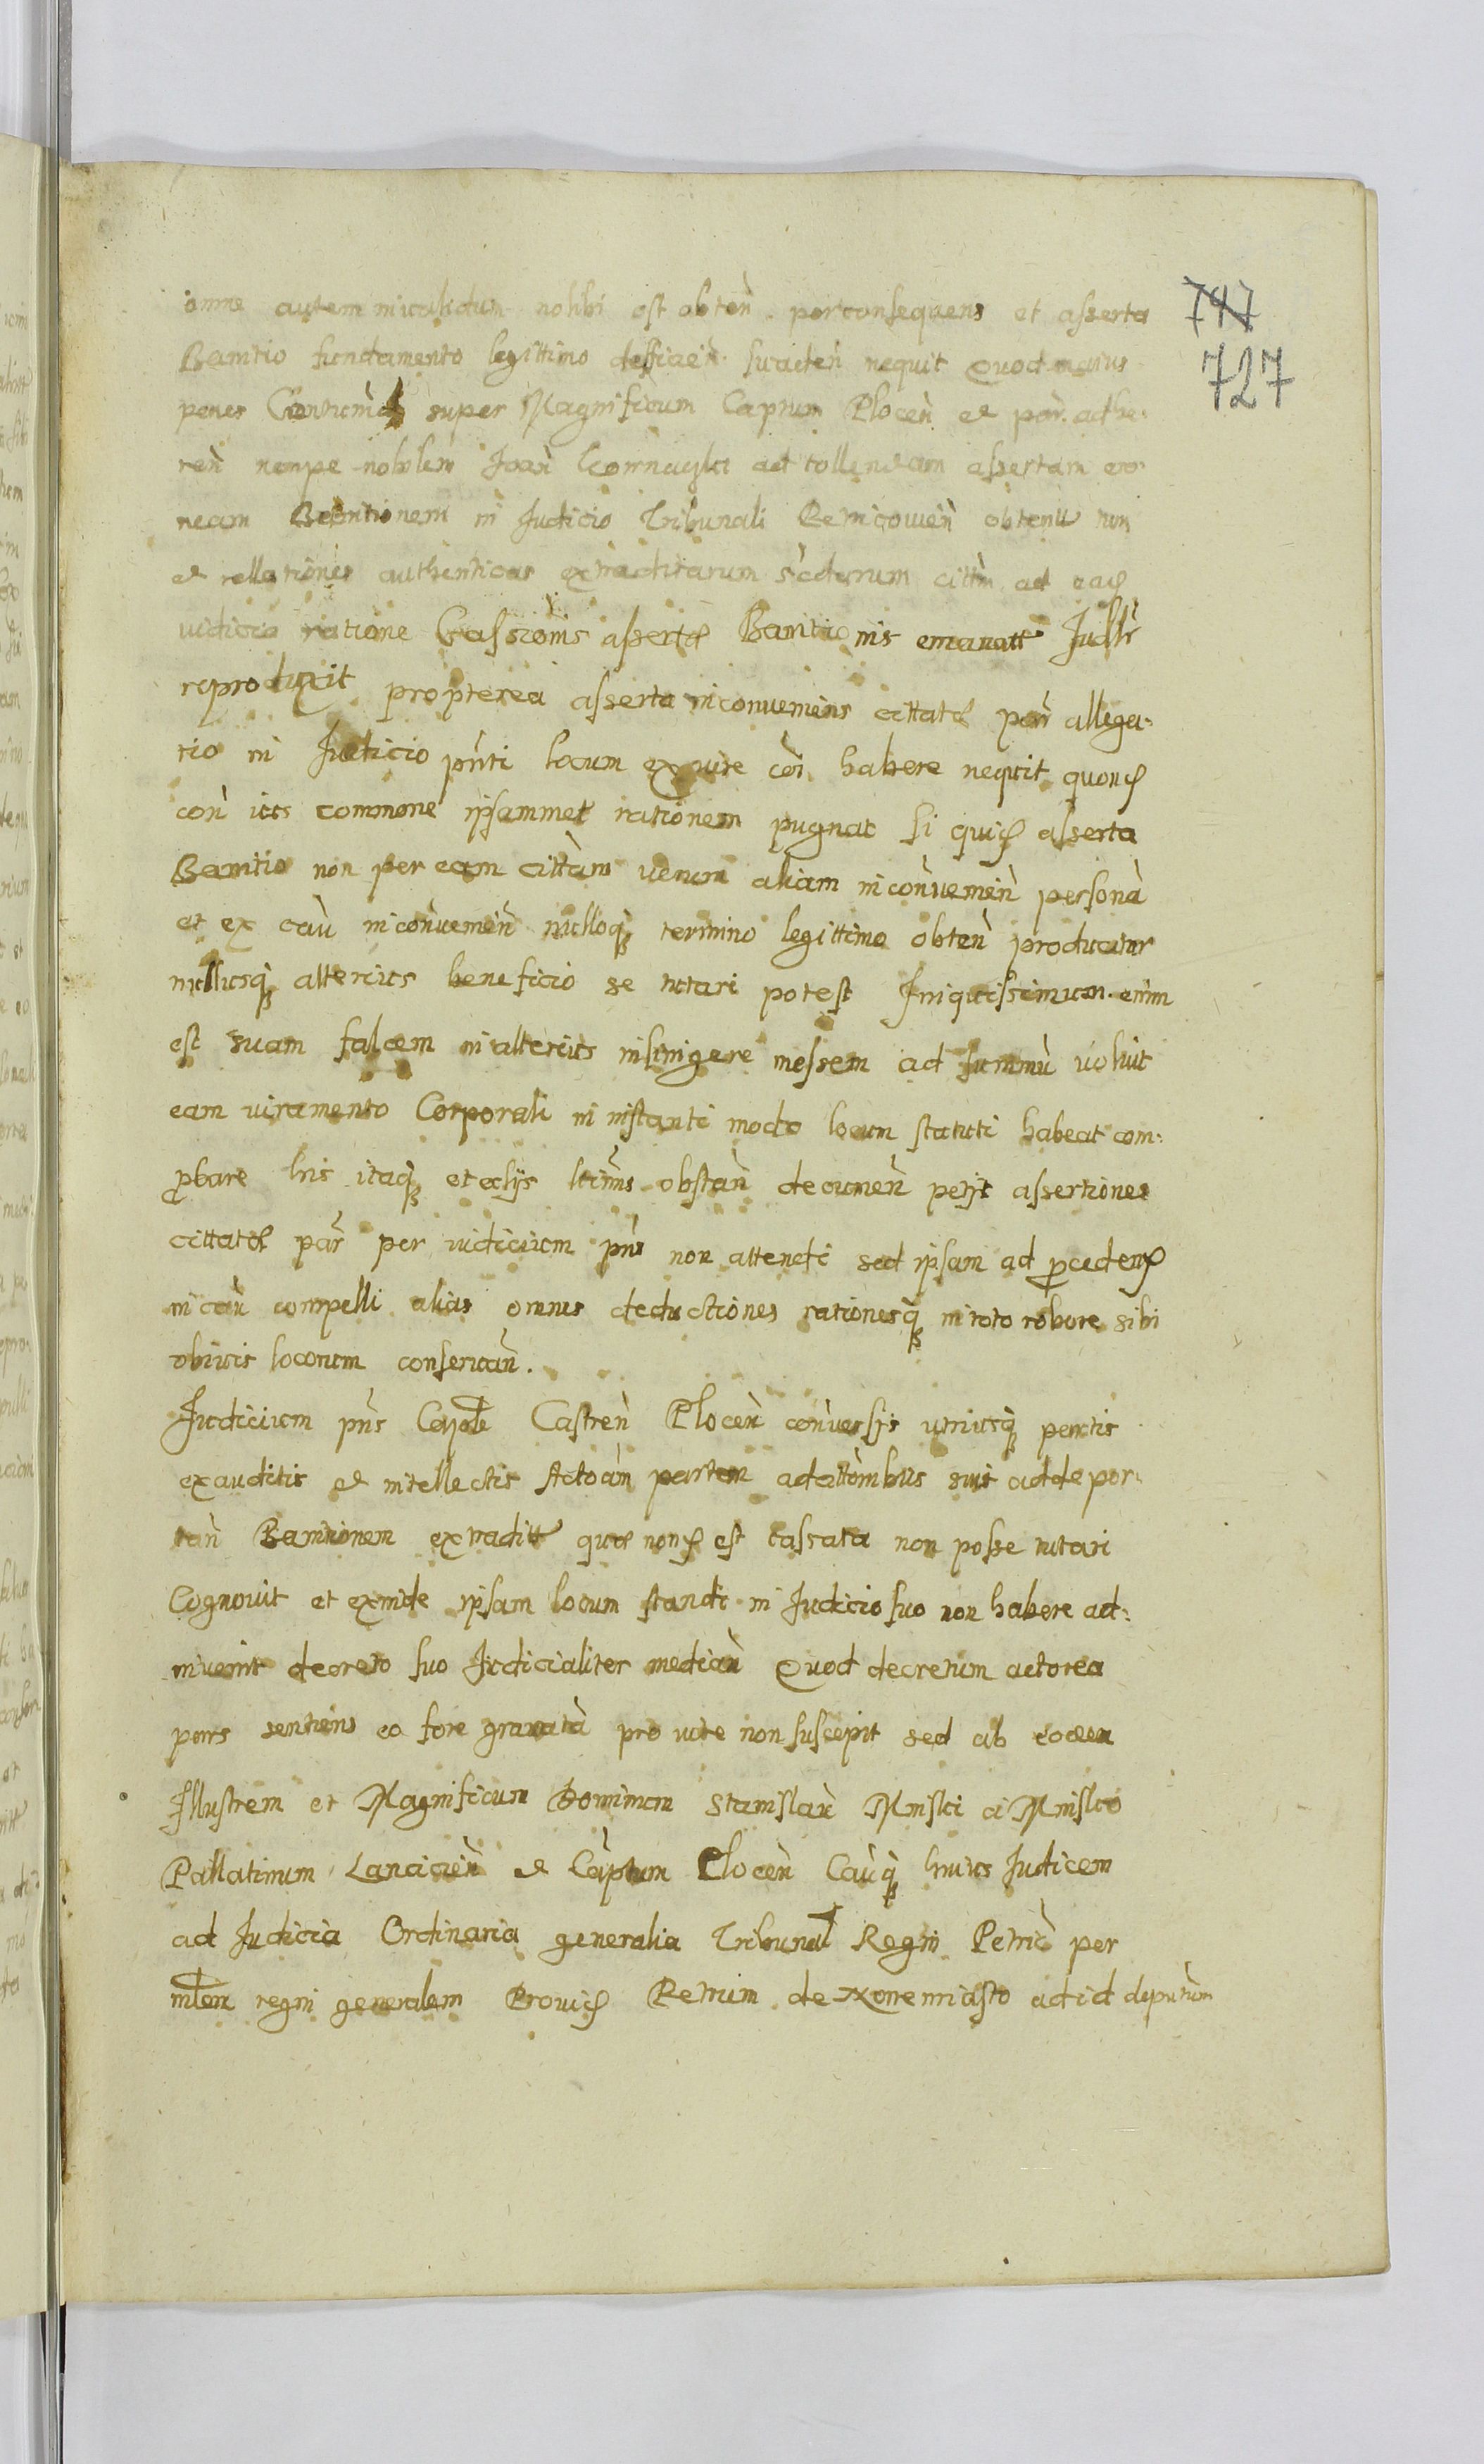 747
727
omne autem inualidum nohbi est obten̄. per consequens et asserta
Banitio fundamento legittimo defficien̄. suaderi nequit Quod maius
penes super Magnificum Captum Plocen̄ et par. adhe:
ren̄ nempe noblem Joan̄ ad tollendam assertam erro
neam Banitionem in Judicio Tribunali Petricouien̄ obtent tum
et rellationes authenticas extraditarum citt̄m ad eaq
iudicia ratione Cassionis assertæ Banitionis emanatt Judllr
reproduxit propterea asserta inconueniens cittatæ par allega:
tio in Judicio pn̄ti locum ex iure coi. habere nequit quonq
con̄ ius commone ipsammet rationem pugnat si quiq asserta
Banitio non per eam citt̄am uerum aliam inconuenien̄ personā
et ex cau̇ inconuenien̄ nulloq termino legittimo obten̄ producatur
nullusq alterius beneficio se tutari potest Iniquissimum enim
est suam falcem in alterius instingere messem ad summū uoluit
eam iuramento Corporali in instanti modo locum statuti habeat com:
probare his itaq et alijs ltimis obstan̄ documen̄ petijt assertiones
cittatæ par per iudicium pn̄s non attendi sed ipsam ad procedenq
in cau̇ compelli alias omnes deductiones rationesq in toto robore sibi
obiuis locorum conseruan̄.
Judicium pn̄s Capłe Castren̄ Plocen̄ conūersijs utriusq partis
exauditis et intellectis Actoām partem ad attōmbus suis ad depor:
tan̄ Banitionem extraditt quæ nonq est cassata non posse tutari
Cognouit et exinde ipsam locum standi in Judicio suo non habere ad:
inuenit decreto suo Judicialiter median̄ Quod decretum actorea
pars sentiens eo fore grauatā pro iure non suscepit sed ab eodem
Illustrem et Magnificum Dominum Stanislau̇ Minski a Minsko
Pallatinum Lancicien̄ et Captum Plocen̄ Cau̇q huius Judicem
ad Judicia Ordinaria generalia Tribunal Regni Petric̄ per
mlem regni generalem Prouiq Petrum de Nonemiasto ad id deputum